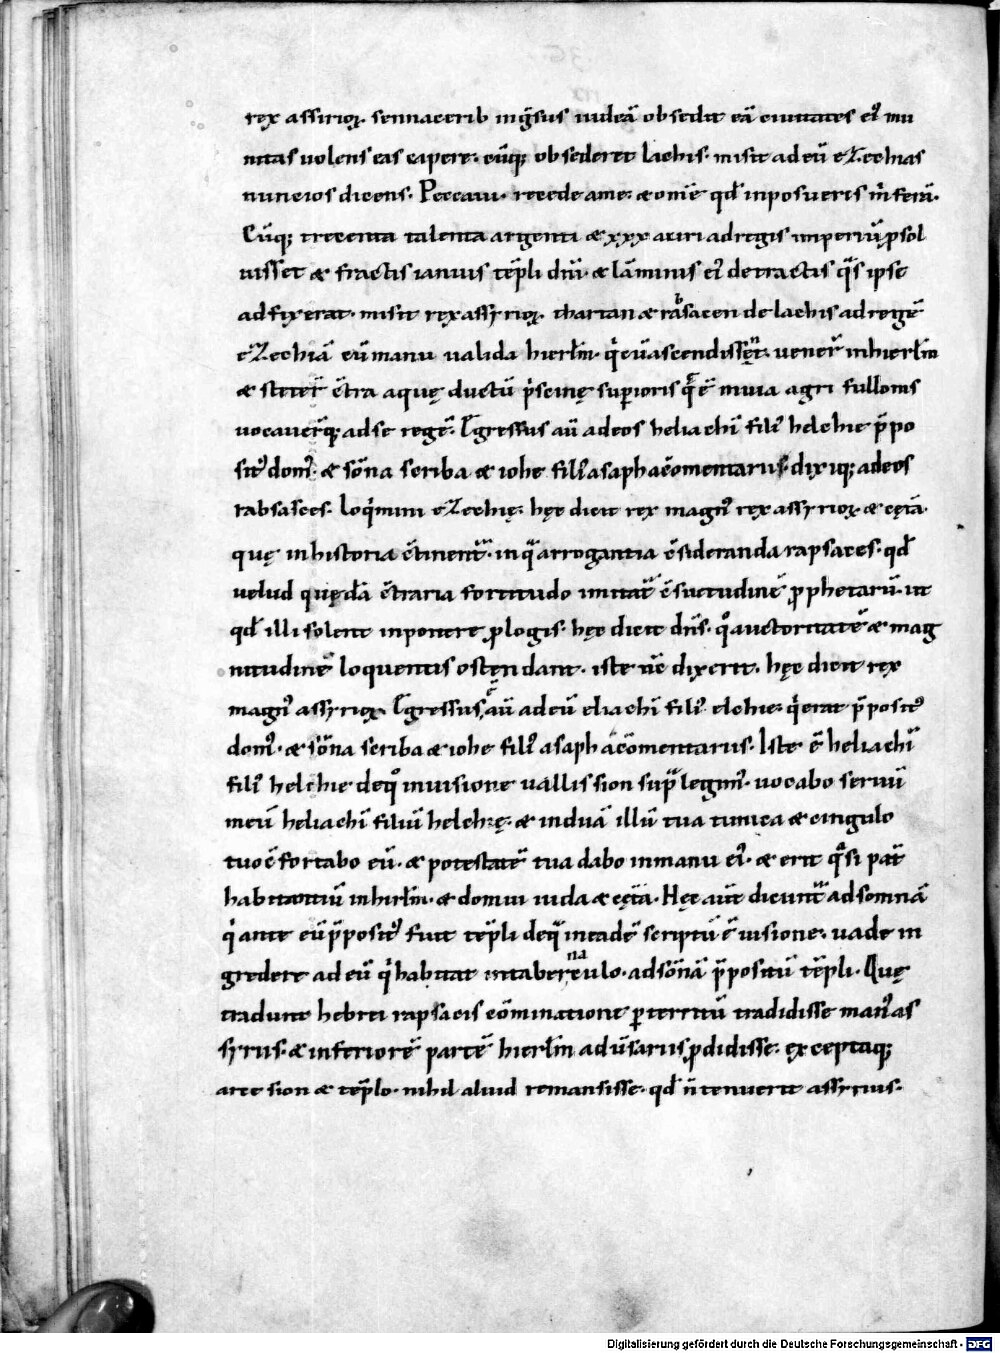 rex assirioꝝ. sennacerib īgͥsus iudeā obsedit eā ciuitates eiꝰ mu
nitas uolens eas capere. cūq; obsederet lachis. misit ad eū eZechias
nuncios dicens. Peccaui. recede a me. & omē qđ inposueris m̊ ferā.
Cūq; trecenta talenta argenti & xxx auri ad regis imperiū psol
uisset & fractis ianuis tēpli dn̄i. & lāminis eiꝰ detractis q̄s ipse
adfixerat. misit rex assyrioꝝ. thartan & rabsacen de lachis ad regē
eZechiā cū manu ualida hierl̄m. qͥ cū ascendissent. uener̄ in hierl̄m
& steter̄ c̄tra aquę ductū pͥscinę superioris q̄ ē in uia agri fullonis
uocauer̄q; ad se regē. Egressus aū ad eos heliachī filiꝰ helchie p̄po
sitꝰ domꝰ. & sōna scriba & iohe filiꝰ asaph a cōmentarus. dixitq; ad eos
rabsases. Loqͥmini eZechię. hęc dicit rex magnꝰ rex assyrioꝝ & cęta.
quę in historia c̄tinent̄. in qͣ arrogantia c̄sideranda rapsaces. qđ
uelud quędā c̄traria fortitudo imitat̄ c̄suetudinē ꝓphetarū. ut
qđ illi solent inponere ꝓlogis. hęc dicit dn̄s. qͦ auctoritatē & mag
nitudinē loquentis ostendant. iste nc̄ dixerit. hęc dicit rex
magnꝰ assyrioꝝ. Egressus ē aū ad eū eliachī filiꝰ elchie. qͥ erat p̄positꝰ
domꝰ. & sōna scriba & iohe filiꝰ asaph a cōmentarus. Iste ē heliachī
filiꝰ helchie de qͦ in uisione uallis sion supͣ legimꝰ. uocabo seruū
meū heliachī filiū helchię. & induā illū tua tunica & cingulo
tuo c̄fortabo eū. & potestatē tua dabo in manu eiꝰ. & erit qͣsi pat̄
habitantiū in hirl̄m. & domui iuda & cęta. Hęc aūt dicunt̄ ad somnā
qͥ ante eū p̄positꝰ fuit tēpli de qͦ in eadē scriptū ē uisione. uade in
gredere ad eū qͥ habitat in tabernaculo. ad sōnā p̄positū tēpli. Quę
tradunt hebrei rapsacis cōminatione ꝑterritū tradidisse manꝰ as
syrus. & inferiorē partē hierl̄m aduersarus ꝓdidisse. exceptaq;
arce sion & tēplo. nihil aliud remansisse. qđ n̄ tenuerit assyrius.
Digitalisierung gefördert durch die Deutsche Forschungsgemeinschaft - DFG